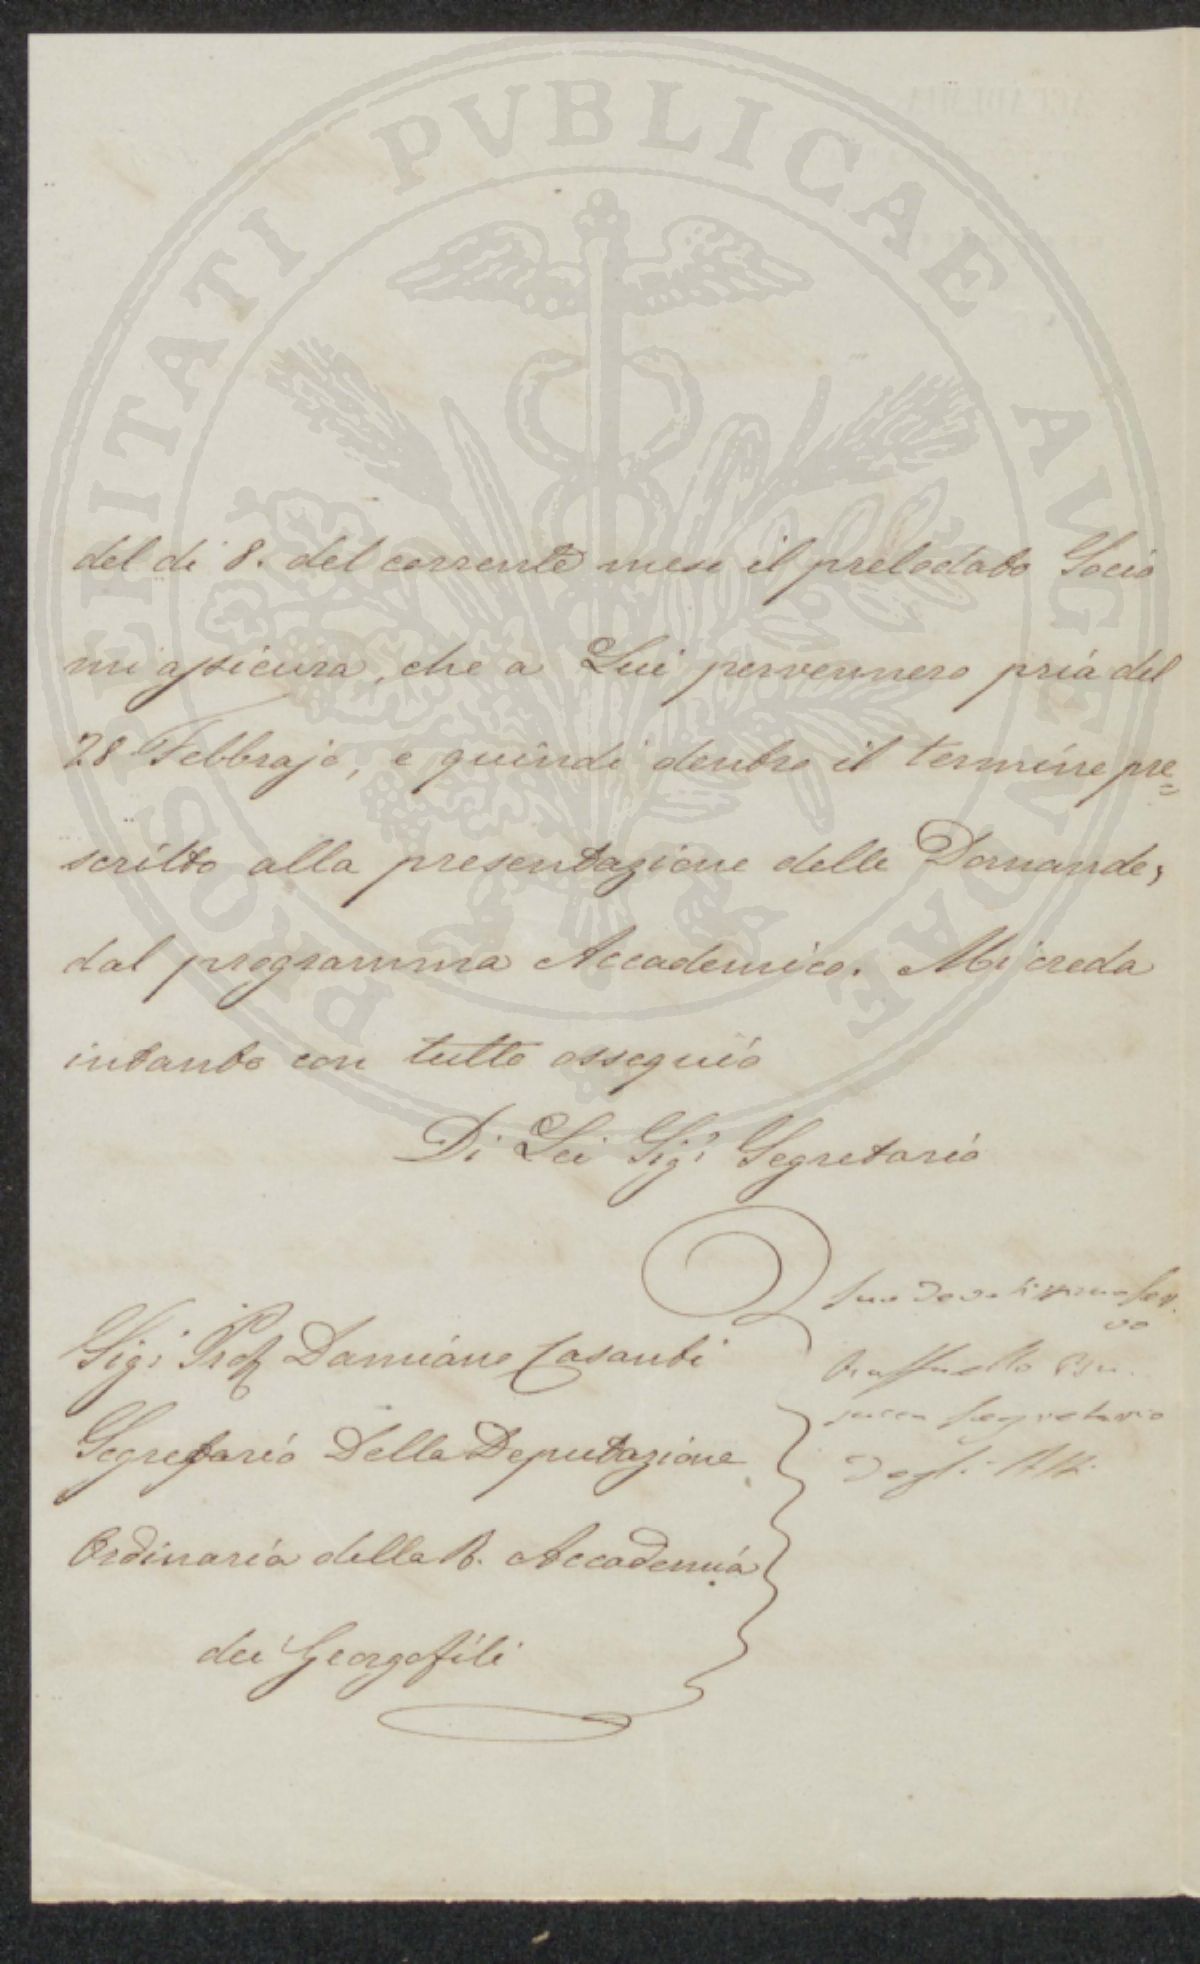 PROSPERITATI PVBLICAE AVGENDAE
del di 8. del corrente mese il prelodato Socio
mi assicura, che a Lui pervennero pria del
28 Febbrajo, e quindi dentro il termine pre=
scritto alla presentazione delle Domande,
dal programma Accademico. Mi creda
intanto con tutto ossequio
Di Lei Sig.r Segretario
Suo Devotissimo Ser.
vo
Raffaello Bu..
sacca Segretario
Degli Atti
Sig.r Prof. Damiano Casanti
Segretario Della Deputazione
Ordinaria della R. Accademia
dei Georgofili